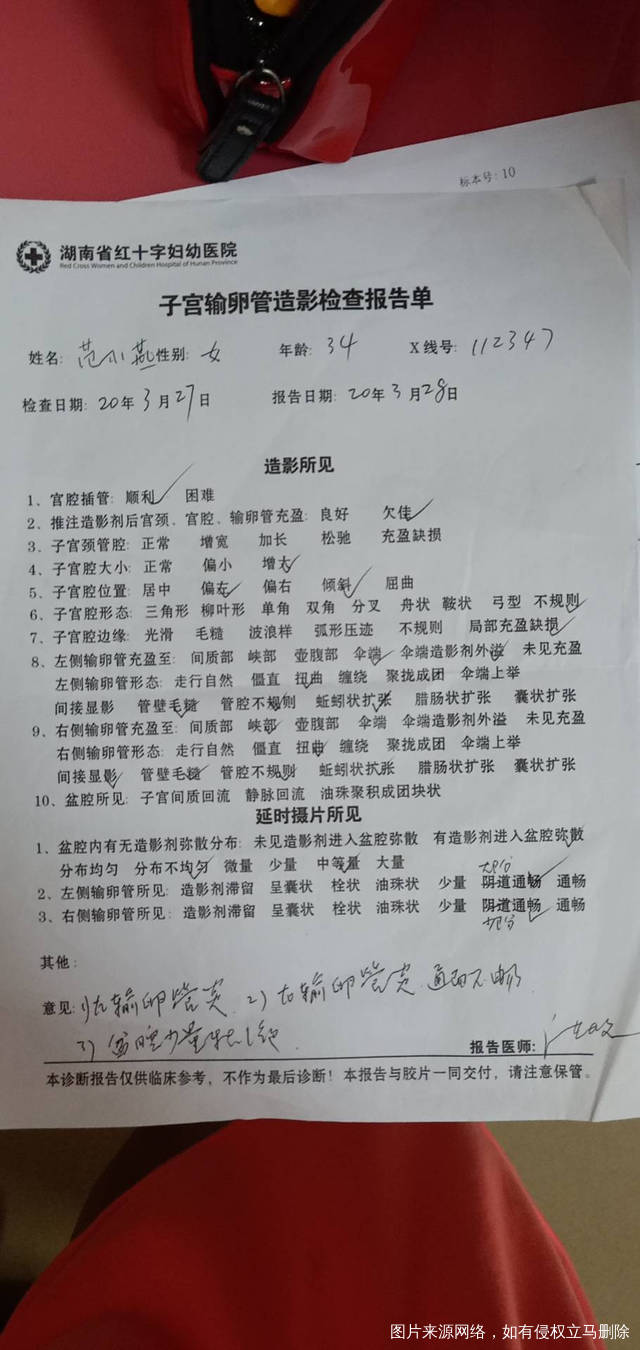 标本号：10
湖南省红十字妇幼医院
Red Cross Women and Children Hospital of Hunan Province
子宫输卵管造影检查报告单
姓名： 范小燕 性别： 女 年龄： 34 X线号： 112347
检查日期： 20年 3月27日 报告日期： 20年 3月28日
造影所见
1、宫腔插管： 顺利 困难
2、推注造影剂后宫颈、宫腔、输卵管充盈： 良好 欠佳
3、子宫颈管腔： 正常 增宽 加长 松驰 充盈缺损
4、子宫腔大小： 正常 偏小 增大
5、子宫腔位置： 居中 偏左 偏右 倾斜 屈曲
6、子宫腔形态： 三角形 柳叶形 单角 双角 分叉 舟状 鞍状 弓型 不规则
7、子宫腔边缘： 光滑 毛糙 波浪样 弧形压迹 不规则 局部充盈缺损
8、左侧输卵管充盈至： 间质部 峡部 壶腹部 伞端 伞端造影剂外溢 未见充盈
左侧输卵管形态： 走行自然 僵直 扭曲 缠绕 聚拢成团 伞端上举
间接显影 管壁毛糙 管腔不规则 蚯蚓状扩张 腊肠状扩张 囊状扩张
9、右侧输卵管充盈至： 间质部 峡部 壶腹部 伞端 伞端造影剂外溢 未见充盈
右侧输卵管形态： 走行自然 僵直 扭曲 缠绕 聚拢成团 伞端上举
间接显影 管壁毛糙 管腔不规则 蚯蚓状扩张 腊肠状扩张 囊状扩张
10、盆腔所见： 子宫间质回流 静脉回流 油珠聚积成团块状
延时摄片所见
1、盆腔内有无造影剂弥散分布： 未见造影剂进入盆腔弥散 有造影剂进入盆腔弥散
分布均匀 分布不均匀 微量 少量 中等量 大量
大部分
2、左侧输卵管所见： 造影剂滞留 呈囊状 栓状 油珠状 少量 阴道通畅 通畅
3、右侧输卵管所见： 造影剂滞留 呈囊状 栓状 油珠状 少量 阴道通畅 通畅
少部分
其他：
意见： 1) 左输卵管炎 2) 右输卵管炎 通而不畅
3) 盆腔少量粘连
报告医师：
本诊断报告仅供临床参考，不作为最后诊断！本报告与胶片一同交付，请注意保管。
图片来源网络，如有侵权立马删除